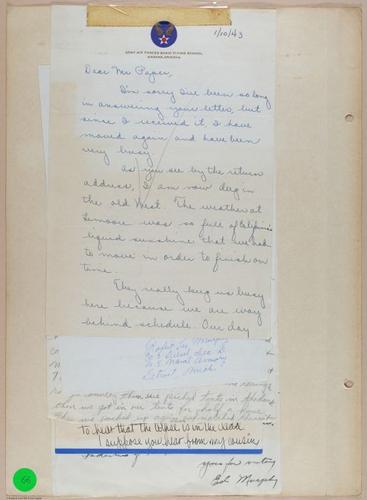 1/10/43
ARMY AIR FORCES BASIC FLYING SCHOOL
Dear Mr Payer,
I'm sorry I've been so long
in answering your letter, but
since I received it, I have
moved again and have been
very busy.
As you see by the return
address, I am now deep in
the old West. The weather at
Lemoore was so full of California's
liquid sunshine that we had
to move in order to finish on
time.
They really keep us busy
here because we are way
behind schedule. Our day
Robert Lee
U.S. Naval Armory
Detroit Mich
pitched tents in
then we got in our tents for half
up again and
to hear that the is in the dead
suppose you hear from my cousin
yours for victory
Bob Murphy
66